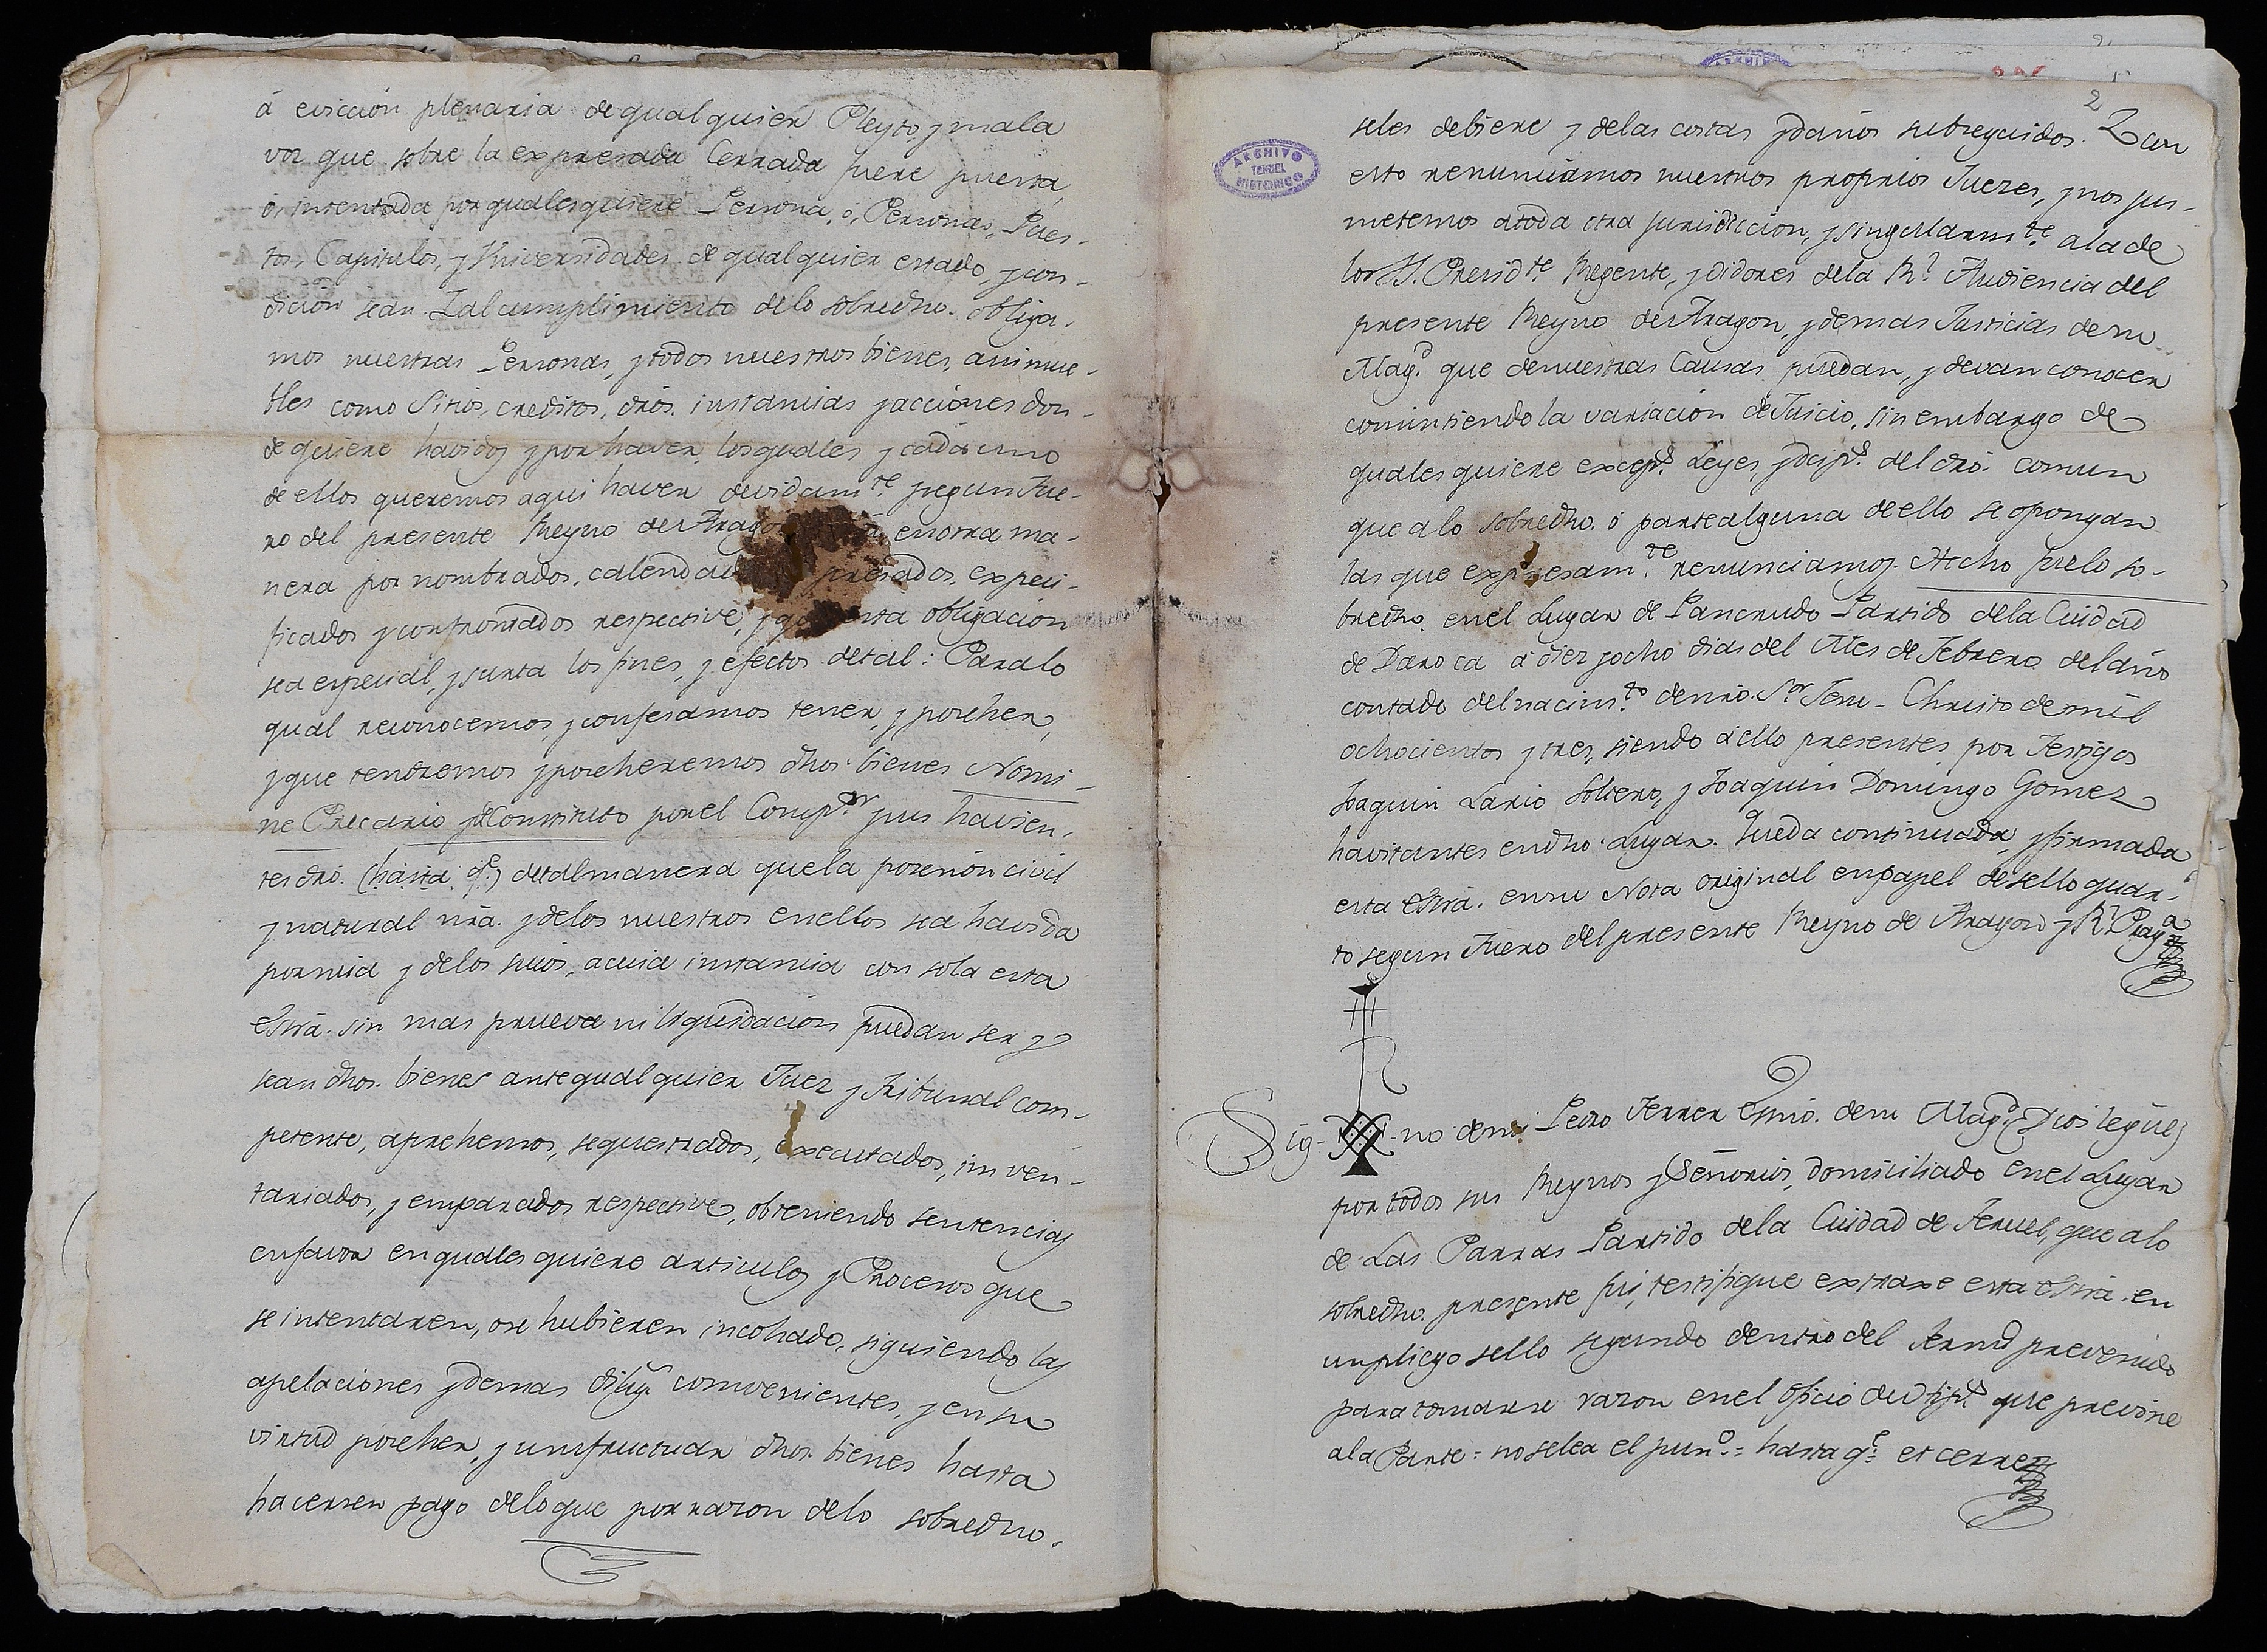 á eviccion plenaria de qualquier Pleyto, y mala
voz que sobre la expresada Cerrada fuere puesta,
ó, intentada por qualesquiere Persona, ó, Personas, Pues-
tos, Capitulos, y Universidades de qualquier estado, y con-
dicion sean. Y al cumplimiento de lo sobredho. obliga-
mos nuestras Personas, y todos nuestros bienes, asi mue-
bles como Sitios, creditos, dros. instancias y acciones don-
de quiere havidos y por haver, los quales y cada uno
de ellos queremos aqui haver devidamte. segun Fue-
ro del presente Reyno de Aragon en otra ma-
nera por nombrados, calendados expeci-
ficados y confrontados respective, y que esta obligacion
sea especial, y surta los fines, y efectos de tal: Para lo
qual reconocemos, y confesamos tener, y poseher,
y que tendremos y poseheremos dhos. bienes Nomi-
ne Precario y de Constituto por el Compor. y sus havien-
tes dro. (hasta qe.) de tal manera que la posesion civil
y natural nra. y de los nuestros en ellos sea havida
por mia y de los suios, a cuia instancia con sola esta
Esrra. sin mas prueva ni liquidacion puedan ser y
sean dhos. bienes ante qualquier Juez y Tribunal com-
petente, aprehensos, sequestrados, executados, inven-
tariados, y emparados respective, obteniendo sentencias
en favor en quales quiere articulos y Procesos que
se intentaren, o se hubieren incohado, siguiendo las
apelaciones y demas dilig. convenientes, y en su
virtud poseher, y usufructuar dhos. bienes hasta
hacersen pago de lo que por razon de lo sobredho.
2
seles debiere y de las costas y daños subseguidos. Y con
esto renunciamos nuestros proprios Jueces, y nos jus-
metemos a toda otra jurisdiccion, y singularmte. a la de
los SS. Presidte. Regente, y Oidores de la Rl. Audiencia del
presente Reyno de Aragon, y demas Justicias de su
Magd. que de nuestras Causas puedan, y devan conocer
consintiendo la variacion de Juicio, sin embargo de
quales quiere excepns. Leyes, y dispns. del dro. comun
que a lo sobredho. o parte alguna de ello se opongan
las que expresamte. renunciamos. Hecho fue lo so-
bredho. en el Lugar de Pancrudo Partido de la Ciudad
de Daroca á diez y ocho dias del Mes de Febrero del año
contado del nacimto. de nro. Sor. Jesu-Christo de mil
ochocientos y tres, siendo á ello presentes por Testigos
Joaquin Lario Soltero, y Joaquin Domingo Gomez
havitantes en dho. Lugar. Queda continuada, y firmada
esta Esrra. en su Nota original en papel de sello quar-
to segun Fuero del presente Reyno de Aragon y Rl. Pragca
Sig-no de mi Pedro Ferrer Esno. de su Magd. (Dios legûe)
por todos sus Reynos y Señorios, domiciliado en el Lugar
de Las Parras Partido de la Ciudad de Teruel, que a lo
sobredho. presente fui, testifique extraxe esta Esrra. en
un pliego sello segundo dentro del Termo. prevenido
para tomarse razon en el oficio de Hipts. que previne
a la Parte: no se lea el punto. = hasta qe: et cerre
ARCHIVO
TERUEL
HISTORICO